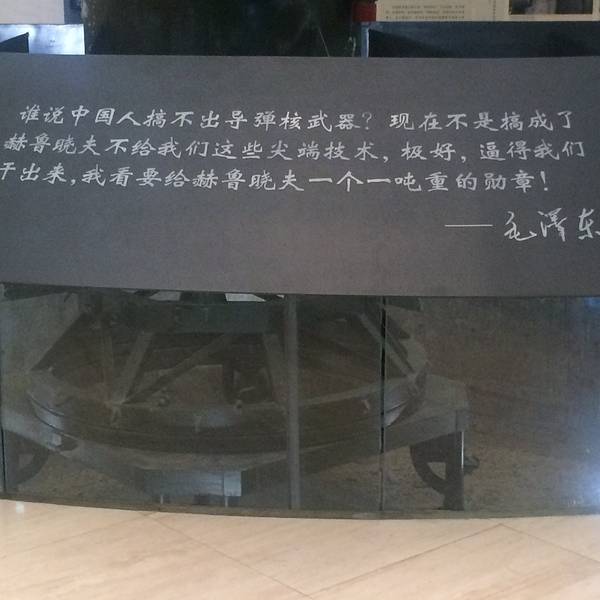 谁说中国人搞不出导弹核武器？现在不是搞成了
赫鲁晓夫不给我们这些尖端技术，极好，逼得我们
干出来，我看要给赫鲁晓夫一个一吨重的勋章！
——毛泽东